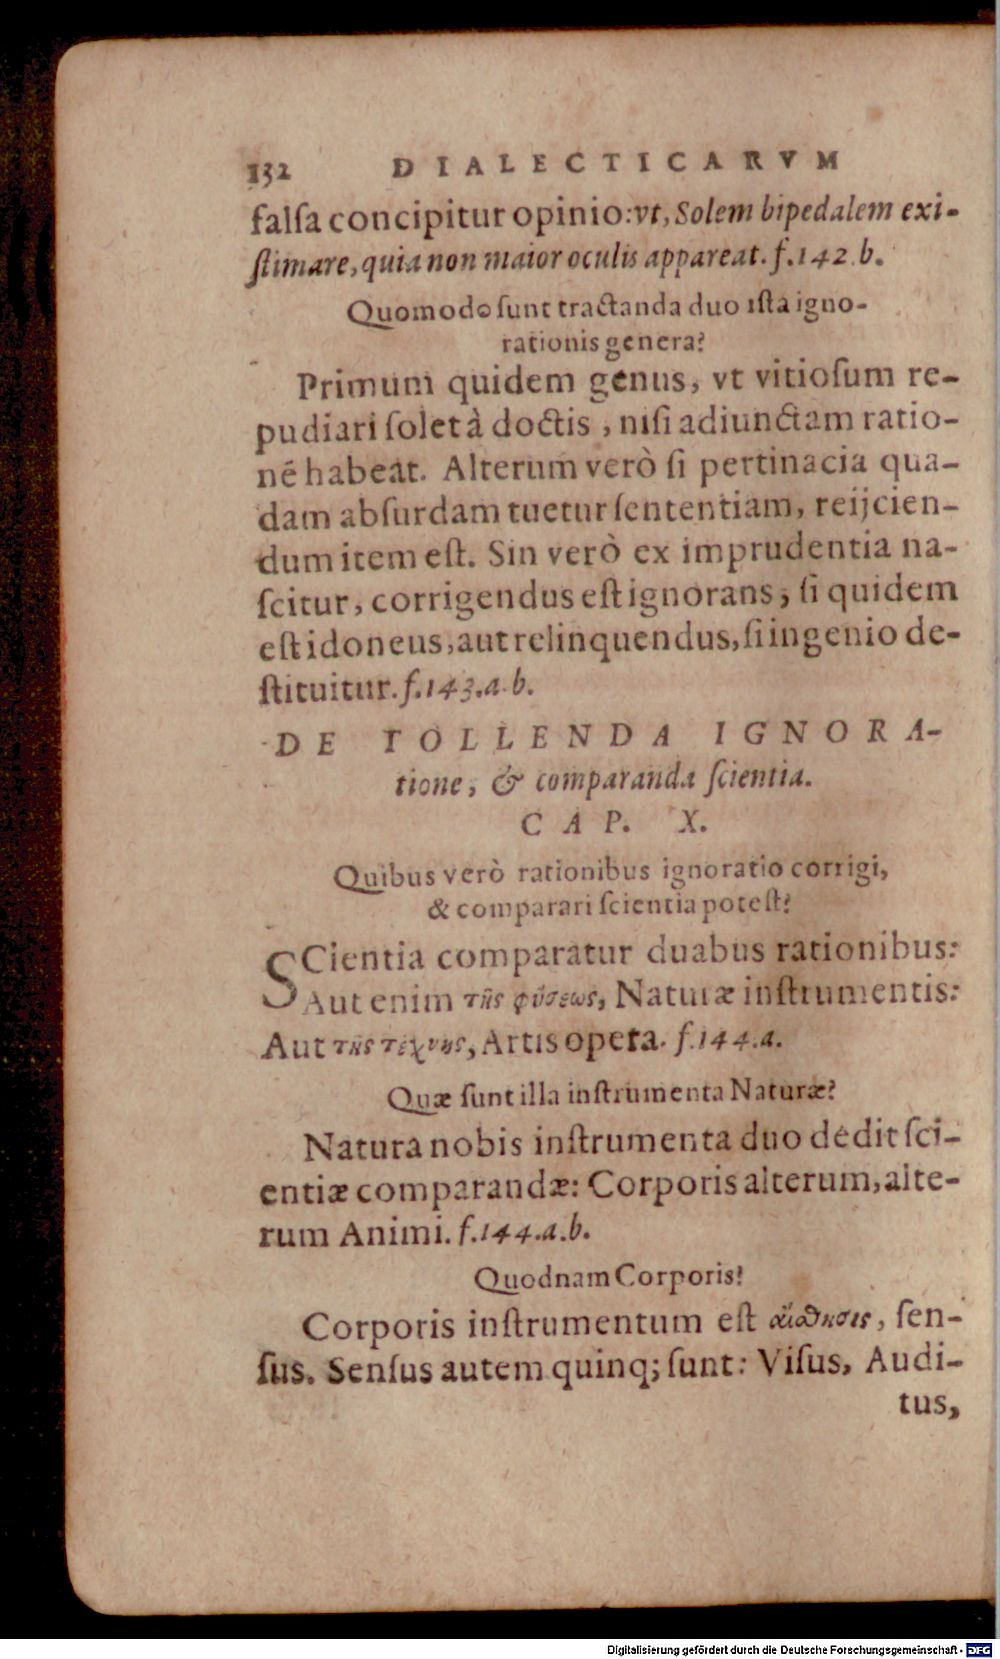 132 DIALECTICARVM
falſa concipitur opinio: vt, Solem bipedalem exi-
ſtimare, quia non maior oculis appareat. f. 142. b.
Quomodo ſunt tractanda duo iſta igno-
rationis genera?
Primum quidem genus, vt vitioſum re-
pudiari ſolet à doctis, niſi adiunctam ratio-
nē habeat. Alterum verò ſi pertinacia qua-
dam abſurdam tuetur ſententiam, reijcien-
dum item eſt. Sin verò ex imprudentia na-
ſcitur, corrigendus eſt ignorans, ſi quidem
eſt idoneus, aut relinquendus, ſi ingenio de-
ſtituitur. f. 143. a. b.
DE TOLLENDA IGNORA-
tione, & comparanda ſcientia.
CAP. X.
Quibus verò rationibus ignoratio corrigi,
& comparari ſcientia poteſt?
SCientia comparatur duabus rationibus:
Aut enim τῆς φύσεως, Naturæ inſtrumentis:
Aut τῆς τέχνης, Artis opera. f. 144. a.
Quæ ſunt illa inſtrumenta Naturæ?
Natura nobis inſtrumenta duo dedit ſci-
entiæ comparandæ: Corporis alterum, alte-
rum Animi. f. 144. a. b.
Quodnam Corporis?
Corporis inſtrumentum eſt αἴσθησις, ſen-
ſus. Senſus autem quinq; ſunt: Viſus, Audi-
tus,
Digitalisierung gefördert durch die Deutsche Forschungsgemeinschaft - DFG